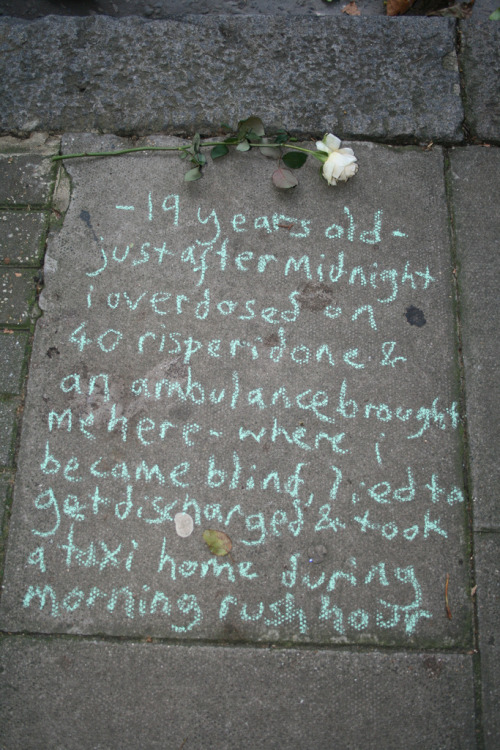 -19 years old-
just after midnight
i overdosed on
40 risperidone &
an ambulance brought
me here - where i
became blind, lied to
get discharged & took
a taxi home during
morning rush hour